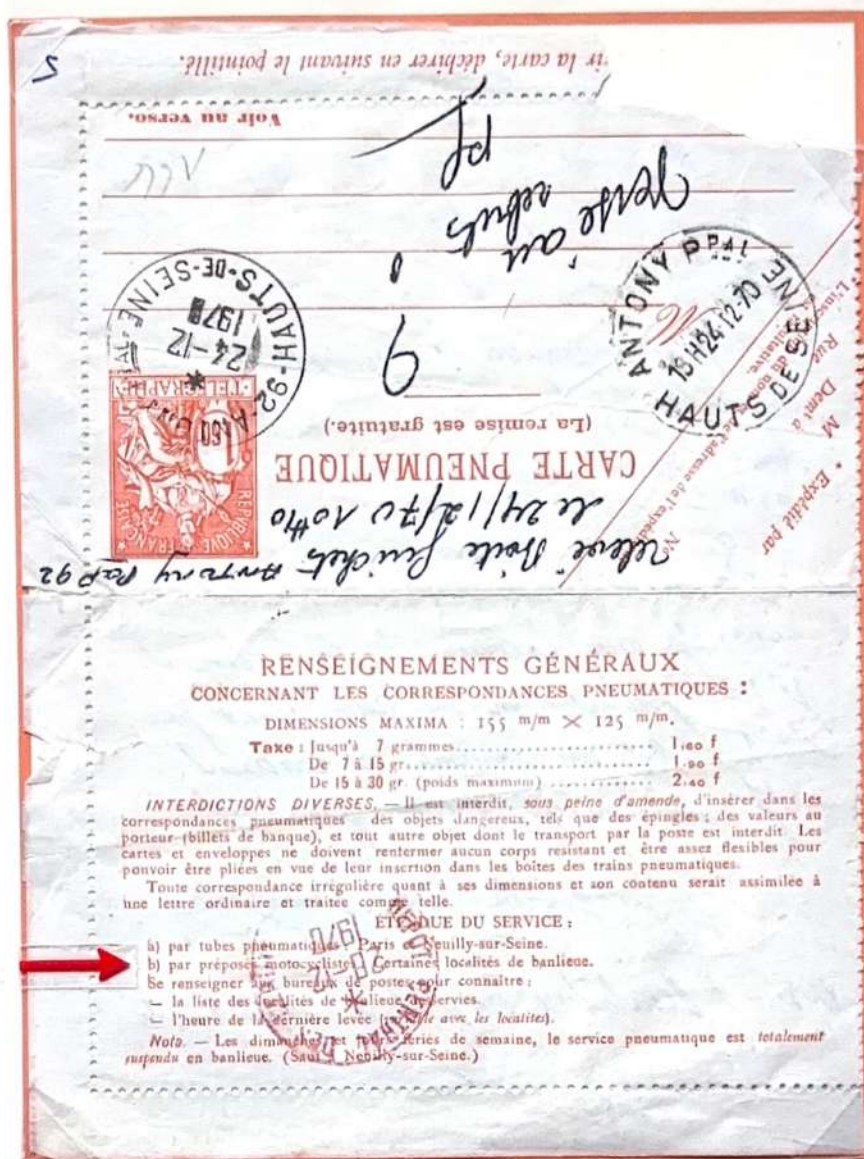 Pour ouvrir la carte, déchirer en suivant le pointillé.
5
Voir au verso.
versé au
rebuts
Pf
9
HAUTS-DE-SEINE
24-12
1970
*
H-92-A
ANTONY PPAL
19H24-12-70
HAUTS DE SEINE
REPUBLIQUE FRANÇAISE
1,60
TELEGRAPHE
(La remise est gratuite.)
CARTE PNEUMATIQUE
relevé Boite guichet ANTONY PPAL 92
le 24/12/70 10H40
Expédié par
M
Demt à
Rue
No
RENSEIGNEMENTS GÉNÉRAUX
CONCERNANT LES CORRESPONDANCES PNEUMATIQUES :
DIMENSIONS MAXIMA : 155 m/m × 125 m/m.
Taxe : Jusqu'à 7 grammes.................... 1.60 f
De 7 à 15 gr.................... 1.90 f
De 15 à 30 gr. (poids maximum) ............ 2.40 f
INTERDICTIONS DIVERSES. — Il est interdit, sous peine d'amende, d'insérer dans les
correspondances pneumatiques des objets dangereux, tels que des épingles ; des valeurs au
porteur (billets de banque), et tout autre objet dont le transport par la poste est interdit. Les
cartes et enveloppes ne doivent renfermer aucun corps resistant et être assez flexibles pour
pouvoir être pliées en vue de leur insertion dans les boîtes des trains pneumatiques.
Toute correspondance irrégulière quant à ses dimensions et son contenu serait assimilée à
une lettre ordinaire et traitée comme telle.
ÉTENDUE DU SERVICE :
a) par tubes pneumatiques : Paris et Neuilly-sur-Seine.
b) par préposés motocyclistes : Certaines localités de banlieue.
Se renseigner aux bureaux de postes pour connaître :
— la liste des localités de banlieue desservies.
— l'heure de la dernière levée (variable avec les localites).
Nota. — Les dimanches et jours fériés de semaine, le service pneumatique est totalement
suspendu en banlieue. (Sauf à Neuilly-sur-Seine.)
28-12
1970